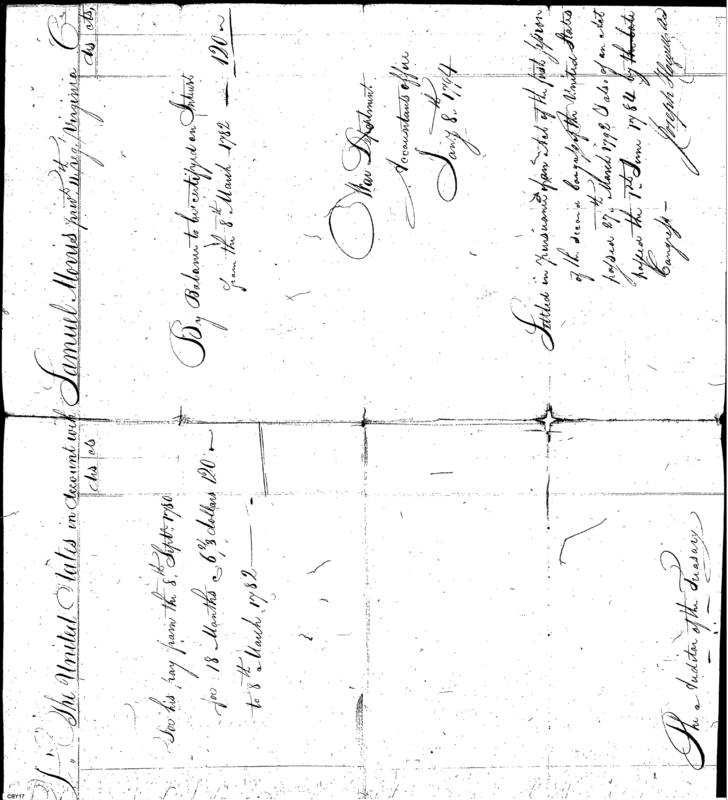 Dr. The United States in Account with Samuel Morris privt. Virginia Cr.
dls cts
To his pay from the 8th Septr. 1780
for 18 Months @ 6 2/3 dollars 120 "
to 8th March 1782
dls cts.
By Balance to be certified on Interest
from the 8th March 1782 — 120 "
War Department
Accountants office
Jany 8th 1794
Settled in pursuance of an Act of the first session
of the second Congress of the United States
passed 27th March 1792 & also of an Act
passed the 1st June 1784 by the late
Congress —
Joseph
The Auditor of the Treasury
CBY17